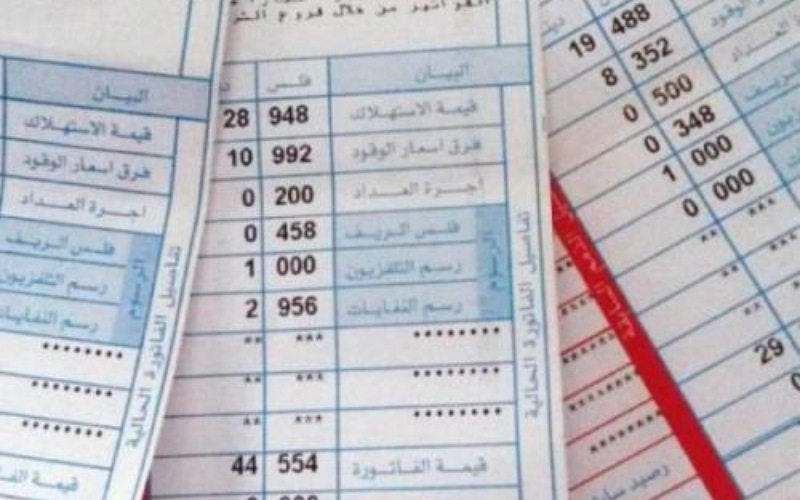 الفواتير من خلال فروع
البيان فلس د
قيمة الاستهلاك 948 28
فرق اسعار الوقود 992 10
اجرة العداد 200 0
فلس الريف 458 0
رسم التلفزيون 000 1
رسم النفايات 956 2
الرسوم
******** *** **
******** *** **
******** *** **
قيمة الفاتورة 554 44
تفاصيل الفاتورة الحالية
البيان
قيمة الاستهلاك
فرق اسعار الوقود
اجرة العداد
فلس الريف
رسم التلفزيون
رسم النفايات
الرسوم
********
********
********
قيمة
تفاصيل الفاتورة الحالية
488 19
الوقود 352 8
العداد 500 0
الريف 348 0
000 1
000 0
*** **
*** **
*** **
29
رصيد